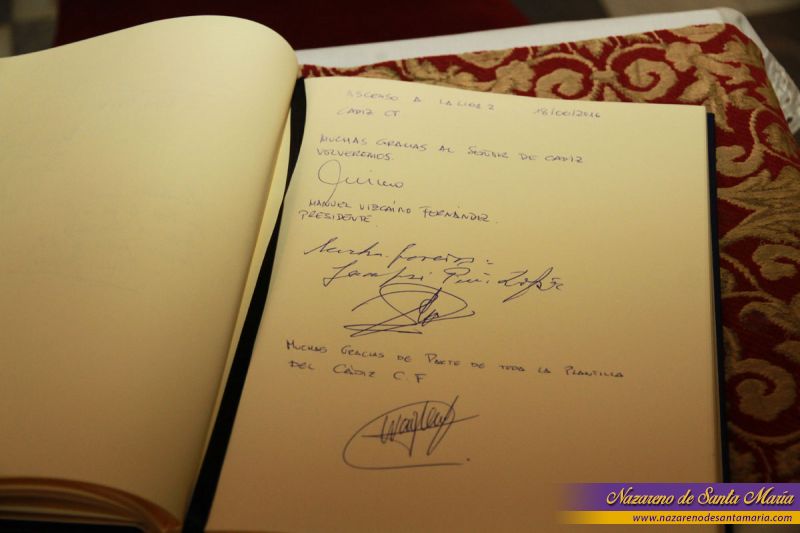 ASCENSO A LA LIGA 2 18/06/2016
CÁDIZ CF
MUCHAS GRACIAS AL SEÑOR DE CÁDIZ
VOLVEREMOS.
MANUEL VIZCAÍNO FERNÁNDEZ.
PRESIDENTE.
Muchas Gracias
MUCHAS GRACIAS DE PARTE DE TODA LA PLANTILLA
DEL CÁDIZ C.F
Nazareno de Santa María
www.nazarenodesantamaria.com